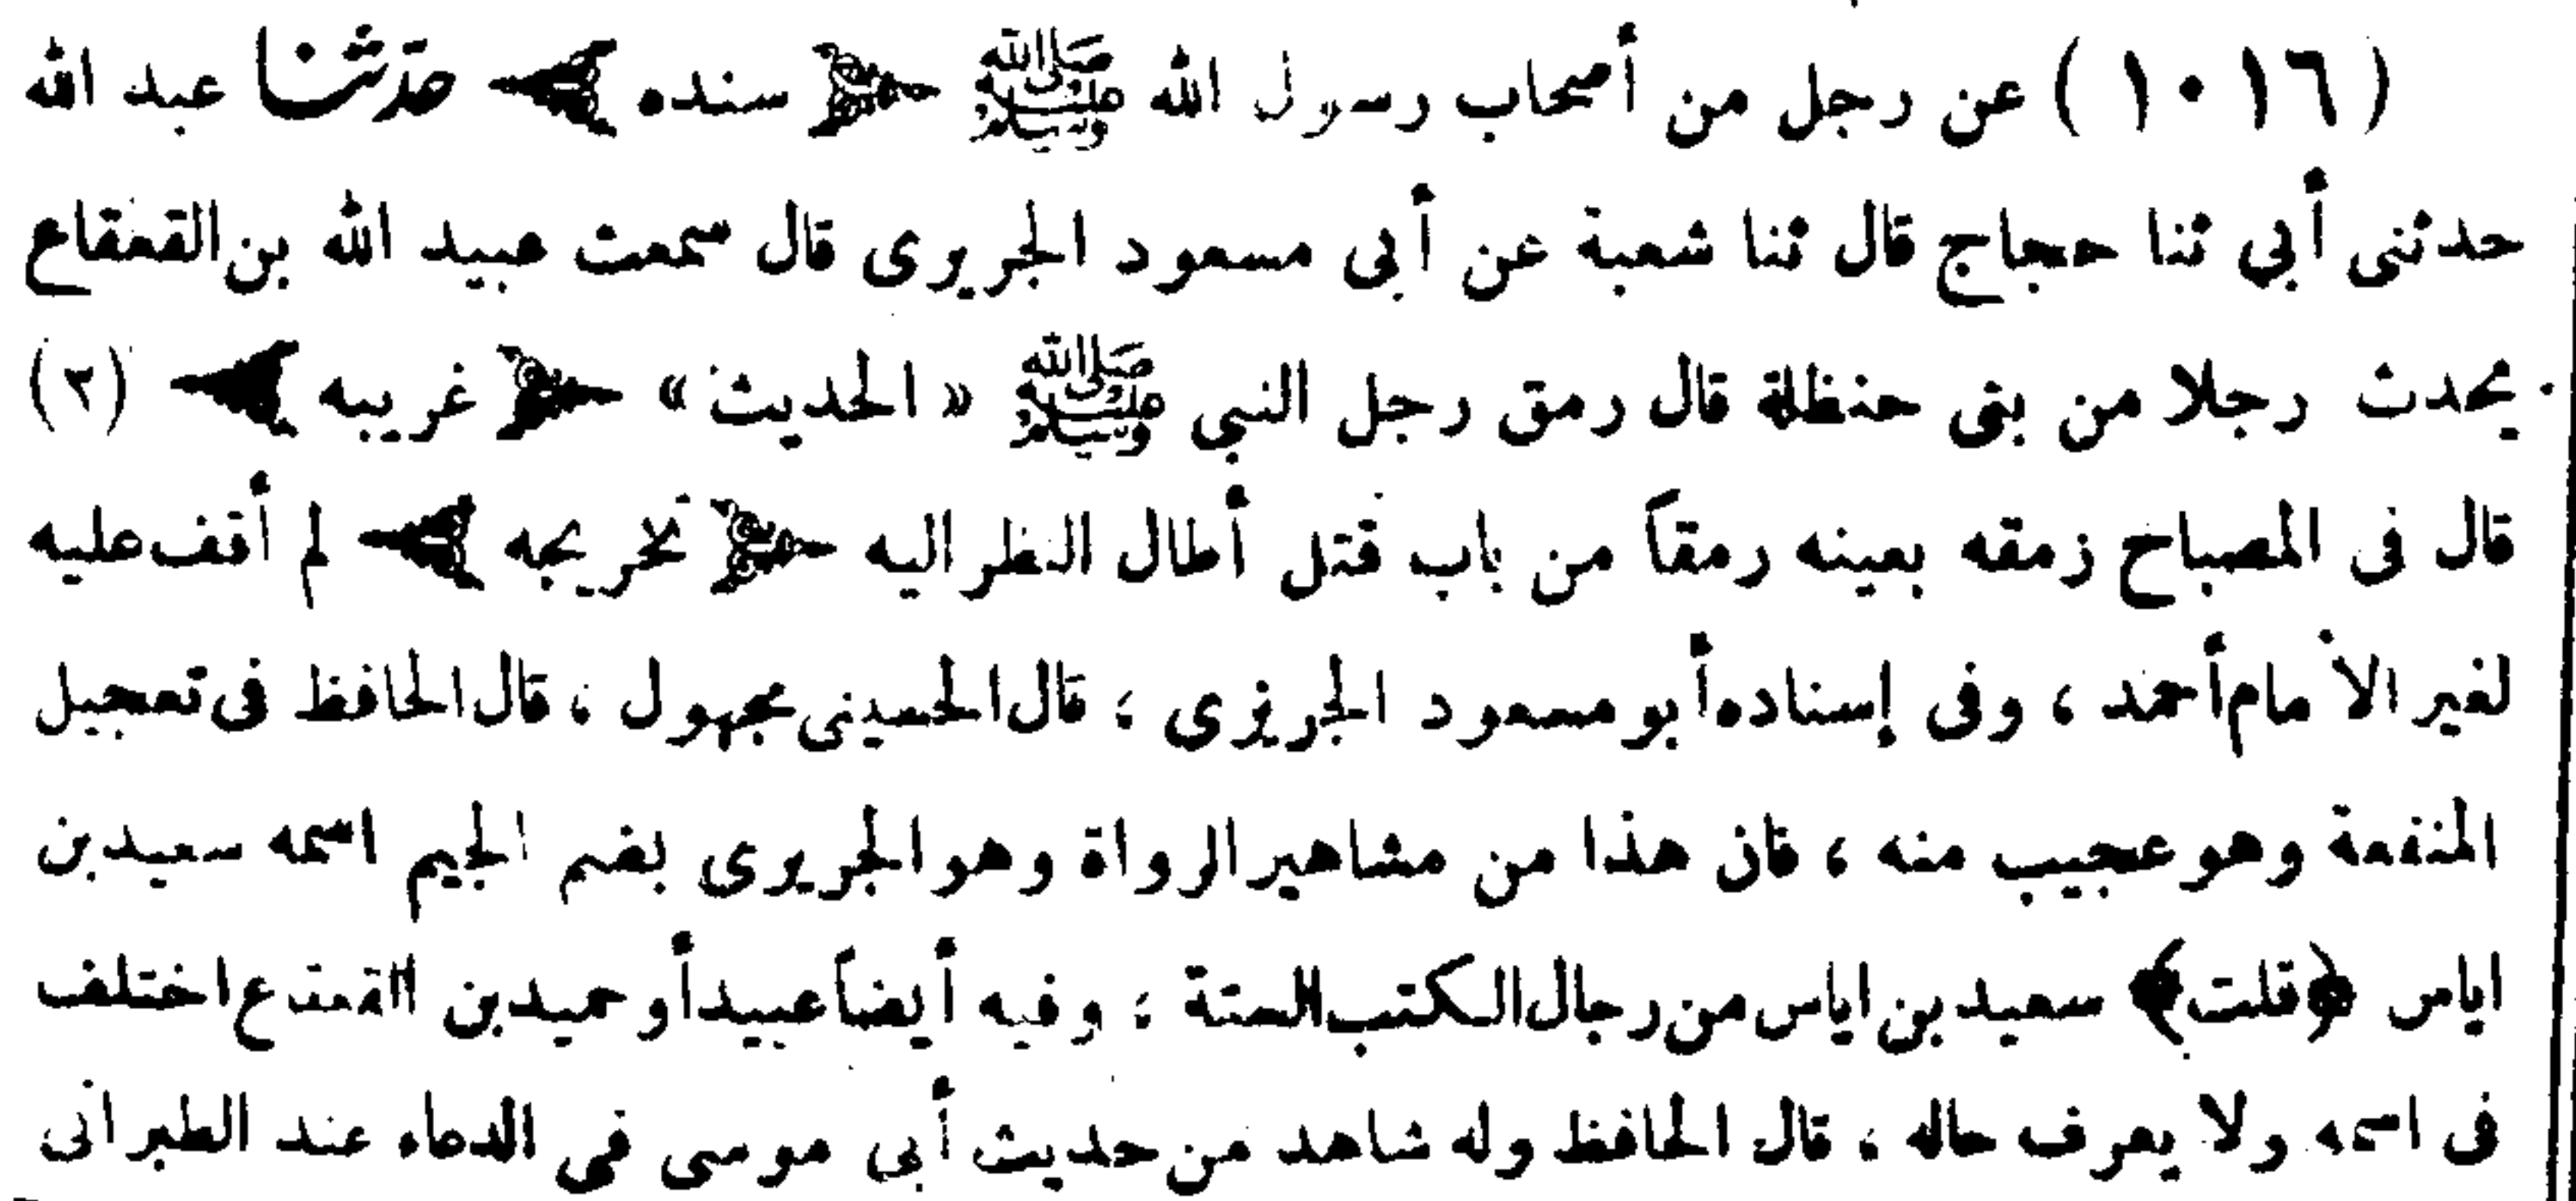 (١٠١٦) عن رجل من أصحاب رسول الله ﷺ ﴿ سنده ﴾ حدثنا عبد الله
حدثنى أبي ثنا حجاج قال ثنا شعبة عن أبى مسعود الجريرى قال سمعت عبيد الله بن القعقاع
يحدث رجلا من بنى حنظلة قال رمق رجل النبي ﷺ « الحديث » ﴿ غريبه ﴾ (٢)
قال فى المصباح رمقه بعينه رمقاً من باب قتل أطال النظر اليه ﴿ تخريجه ﴾ لم أقف عليه
لغير الأمام أحمد ، وفى إسناده أبو مسعود الجريرى ، قال الحسينى مجهول ، قال الحافظ فى تعجيل
المنفعة وهو عجيب منه ، فان هذا من مشاهير الرواة وهو الجريرى بضم الجيم اسمه سعيد بن
اياس ﴿قلت﴾ سعيد بن اياس من رجال الكتب الستة ، وفيه أيضاً عبيد أو حميد بن القعقاع اختلف
فى اسمه ولا يعرف حاله ، قال الحافظ وله شاهد من حديث أبي موسى في الدعاء عند الطبرانى